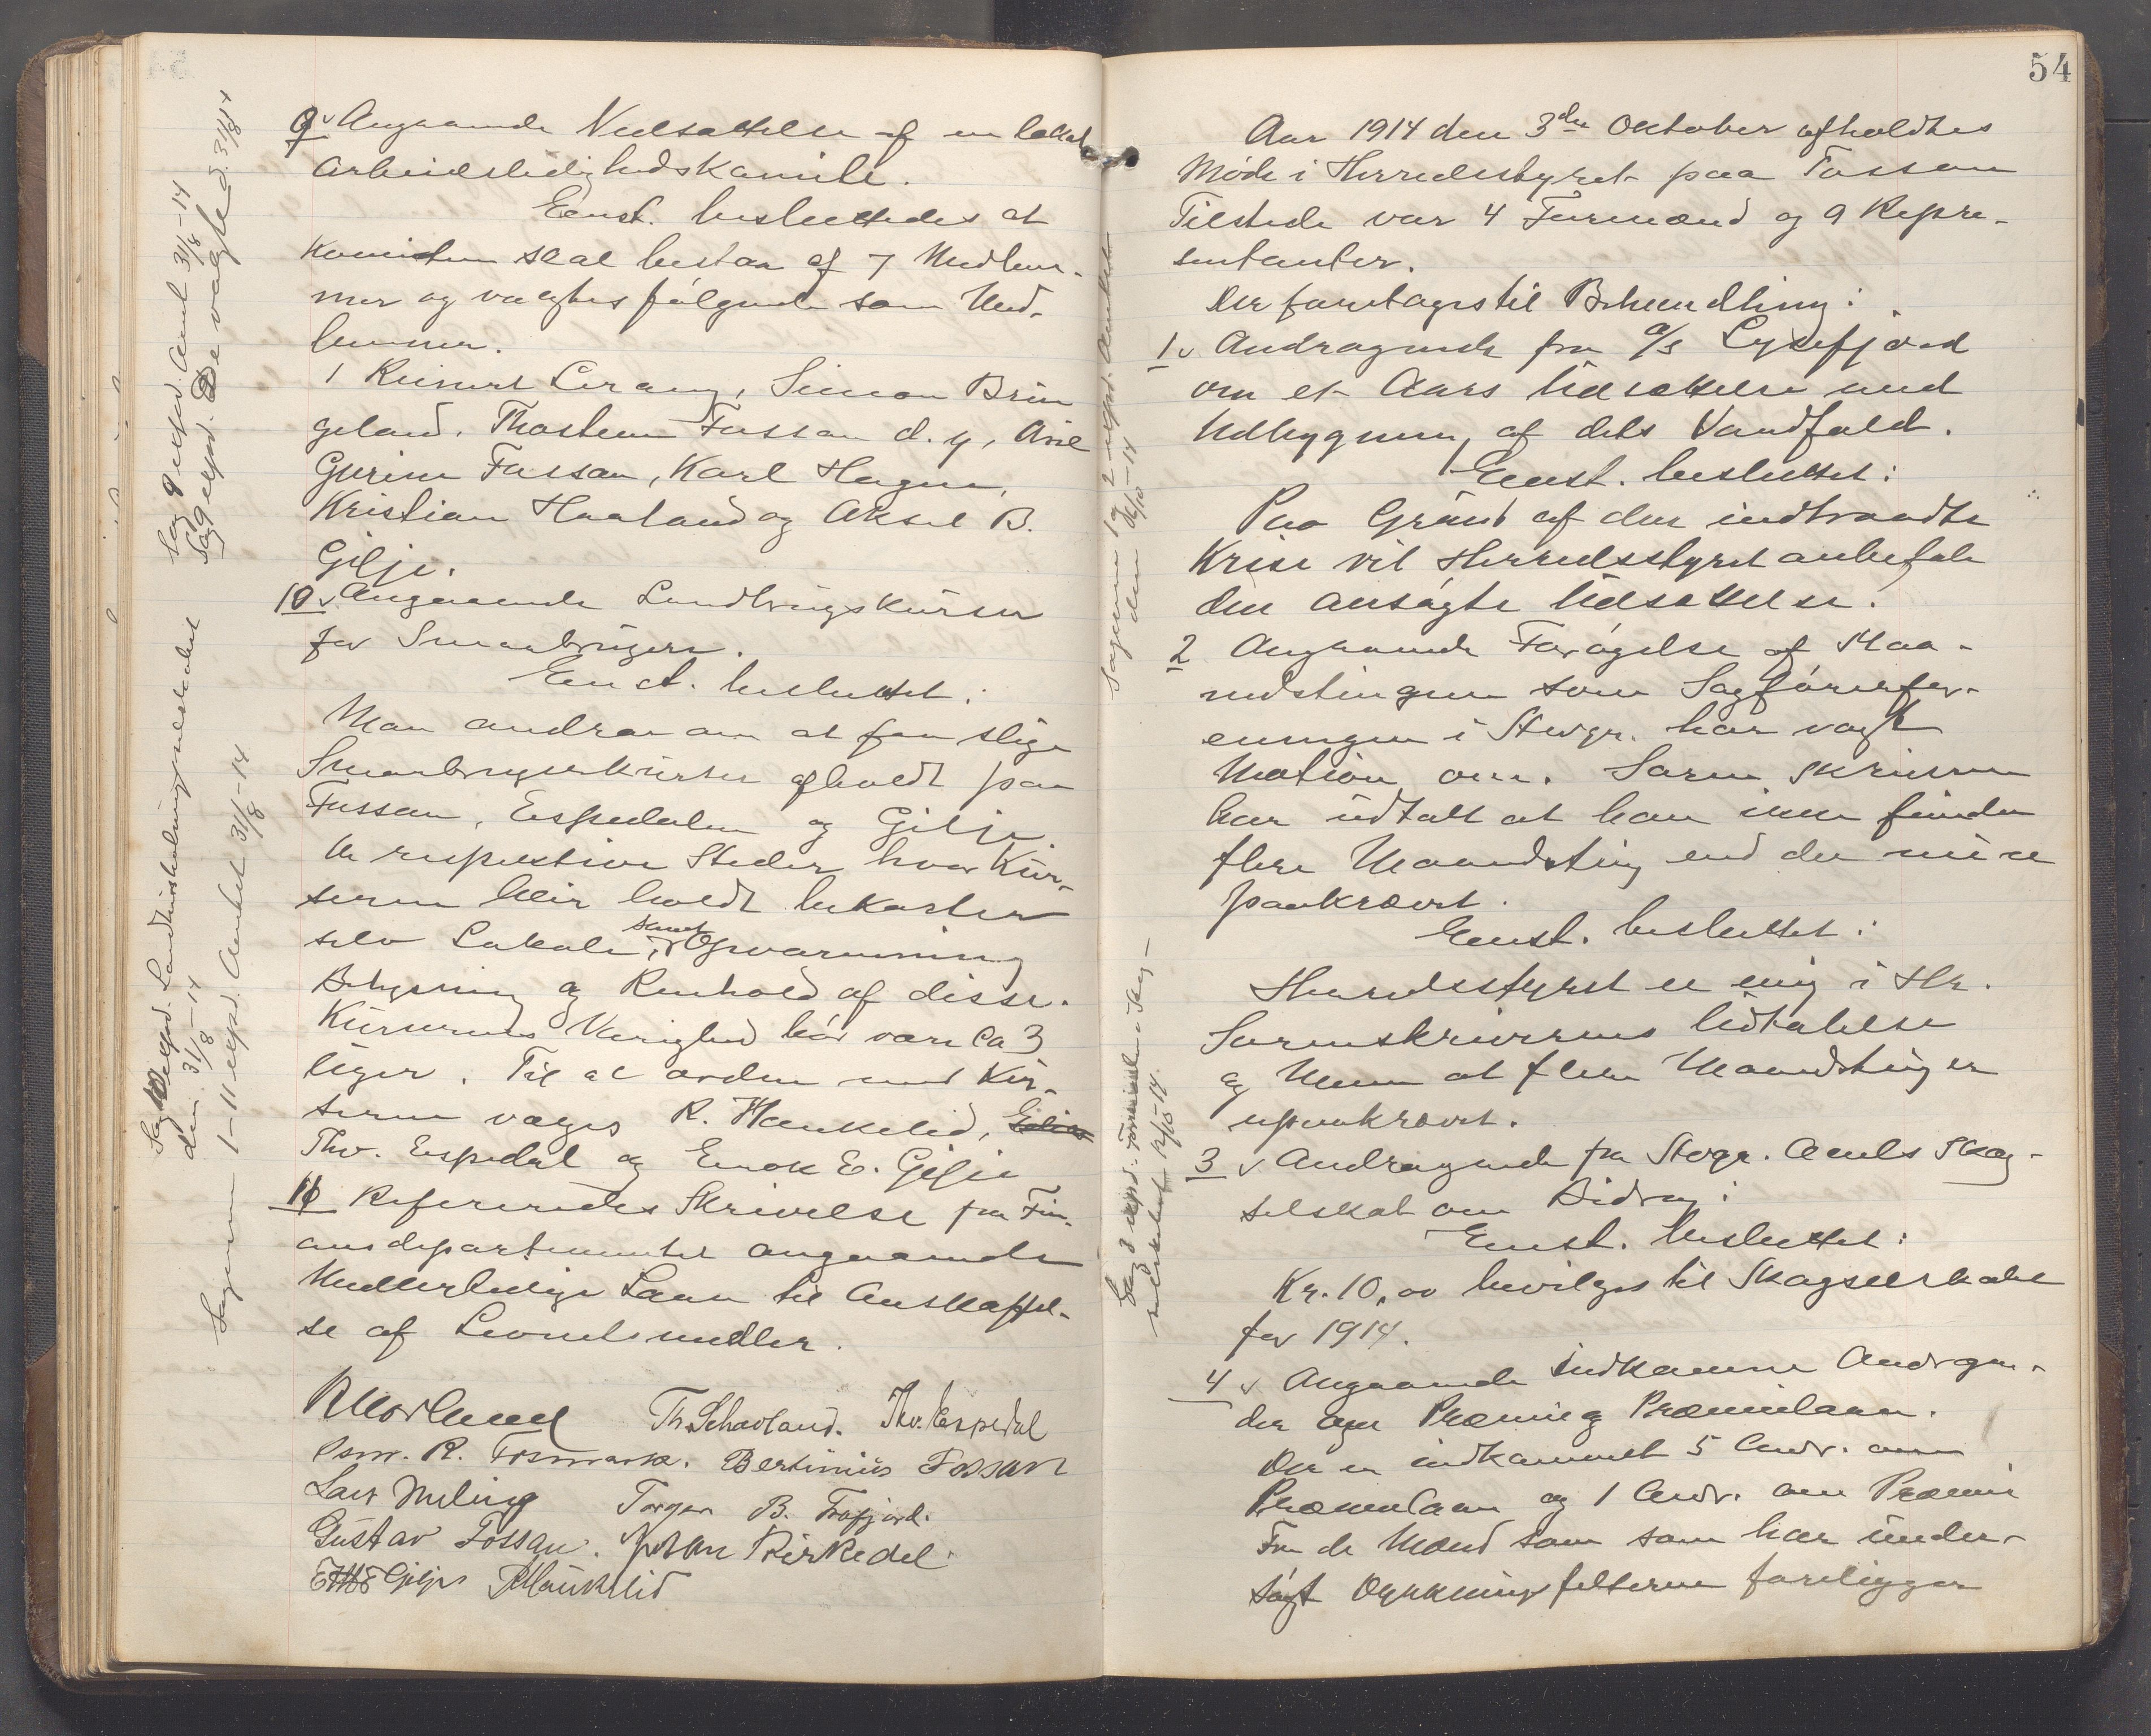 9 v Angaaende Nedsættelse af en lokal
Arbeidsledighedskomite.
Enst. besluttedes at
Komiteen skal bestaa af 7 Medlem-
mer og valgtes følgende som Med-
lemmer.
1 Reinert Lerang, Simon Brin
geland, Thostein Fossan d. y,
Fossan, Karl Hagen,
Kristian Haaland og Aksel B.
Gilje.
10 v Angaaende Landbrugskurser
for Smaabrugere.
Enst. besluttet:
Man andrar om at faa slige
Smaabrugerkurser afholdt paa
Fossan, Espedalen og Gilje
de respektive Steder hvor Kur-
serne blir holdt bekoster
selv Lokale, samt Opvarmning
Belysning og Renhold af disse.
Kursernes Varighed bør være ca 3
uger. Til at ordne med Kur-
serne valges R. Haukelid,
Thv. Espedal og Enok E. Gilje
11 Refereredes Skrivelse fra Fin-
ansdepartementet angaaende
Midlertidige Laan til Anskaffel-
se af Levnetsmidler.
R Morland Th. Schavland. Thv. Espedal
Osm. R. Fosmark. Bertinius Fossan
Lars Meling Torger B. Frafjord.
Gustav Fossan. Johan Kirkedal
E Gilje R Haukelid
Sag 9 exped. Amtet 31/8-14
Sag 9 exped. De valgte d. 31/8 14
Sag 10 exped. Landhusholdningsselskabet
den 31/8-14
Sagerne 1-11 exped. Amtet 31/8-14
54
Aar 1914 den 3die Oktober afholdtes
Møde i Herredsstyret paa Fossan
Tilstede var 4 Formænd og 9 Repre-
sentanter.
Der foretages til Behandling:
1 v Andragende fra A/S Lysefjord
om et Aars Udsættelse med
Udbygning af dets Vandfald.
Enst. besluttet:
Paa Grund af den indtraadte
Krise vil Herredsstyret anbefale
den ansøgte Udsættelse.
2 Angaaende Forøgelse af Maa-
nedstingene som Sagførerfor-
eningen i Stvgr. har vagt
Motion om. Sorenskriveren
har udtalt at han ikke finder
flere Maanedsting end de
paakrævet.
Enst. besluttet:
Herredsstyret er enig i Hr.
Sorenskriverens Udtalelse
og mener at flere Maanedsting er
upaakrævet.
3 v Andragende fra Stvgr. Amts Skog-
selskab om Bidrag:
Enst. besluttet:
Kr. 10,00 bevilges til Skogselskabet
for 1914.
4 v Angaaende indkomne Andragen-
der om Præmie og Præmielaan.
Der er indkommet 5 Andr. om
Præmielaan og 1 Andr. om Præmie
Fra de Mænd som som har under-
søgt Dyrkningsfelterne foreligger
Sagerne 1 og 2 exped. Amtet
den 12/10-14
Sag 3 exped. Formanden i Skog-
selskabet 12/10-14.